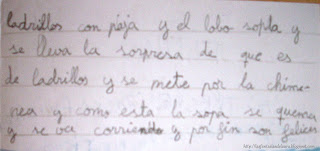 ladrillos con paja y el lobo sopla y
se lleva la sorpresa de que es
de ladrillos y se mete por la chime-
nea y como esta la sopa se quema
y se va corriendo y por fin son felices